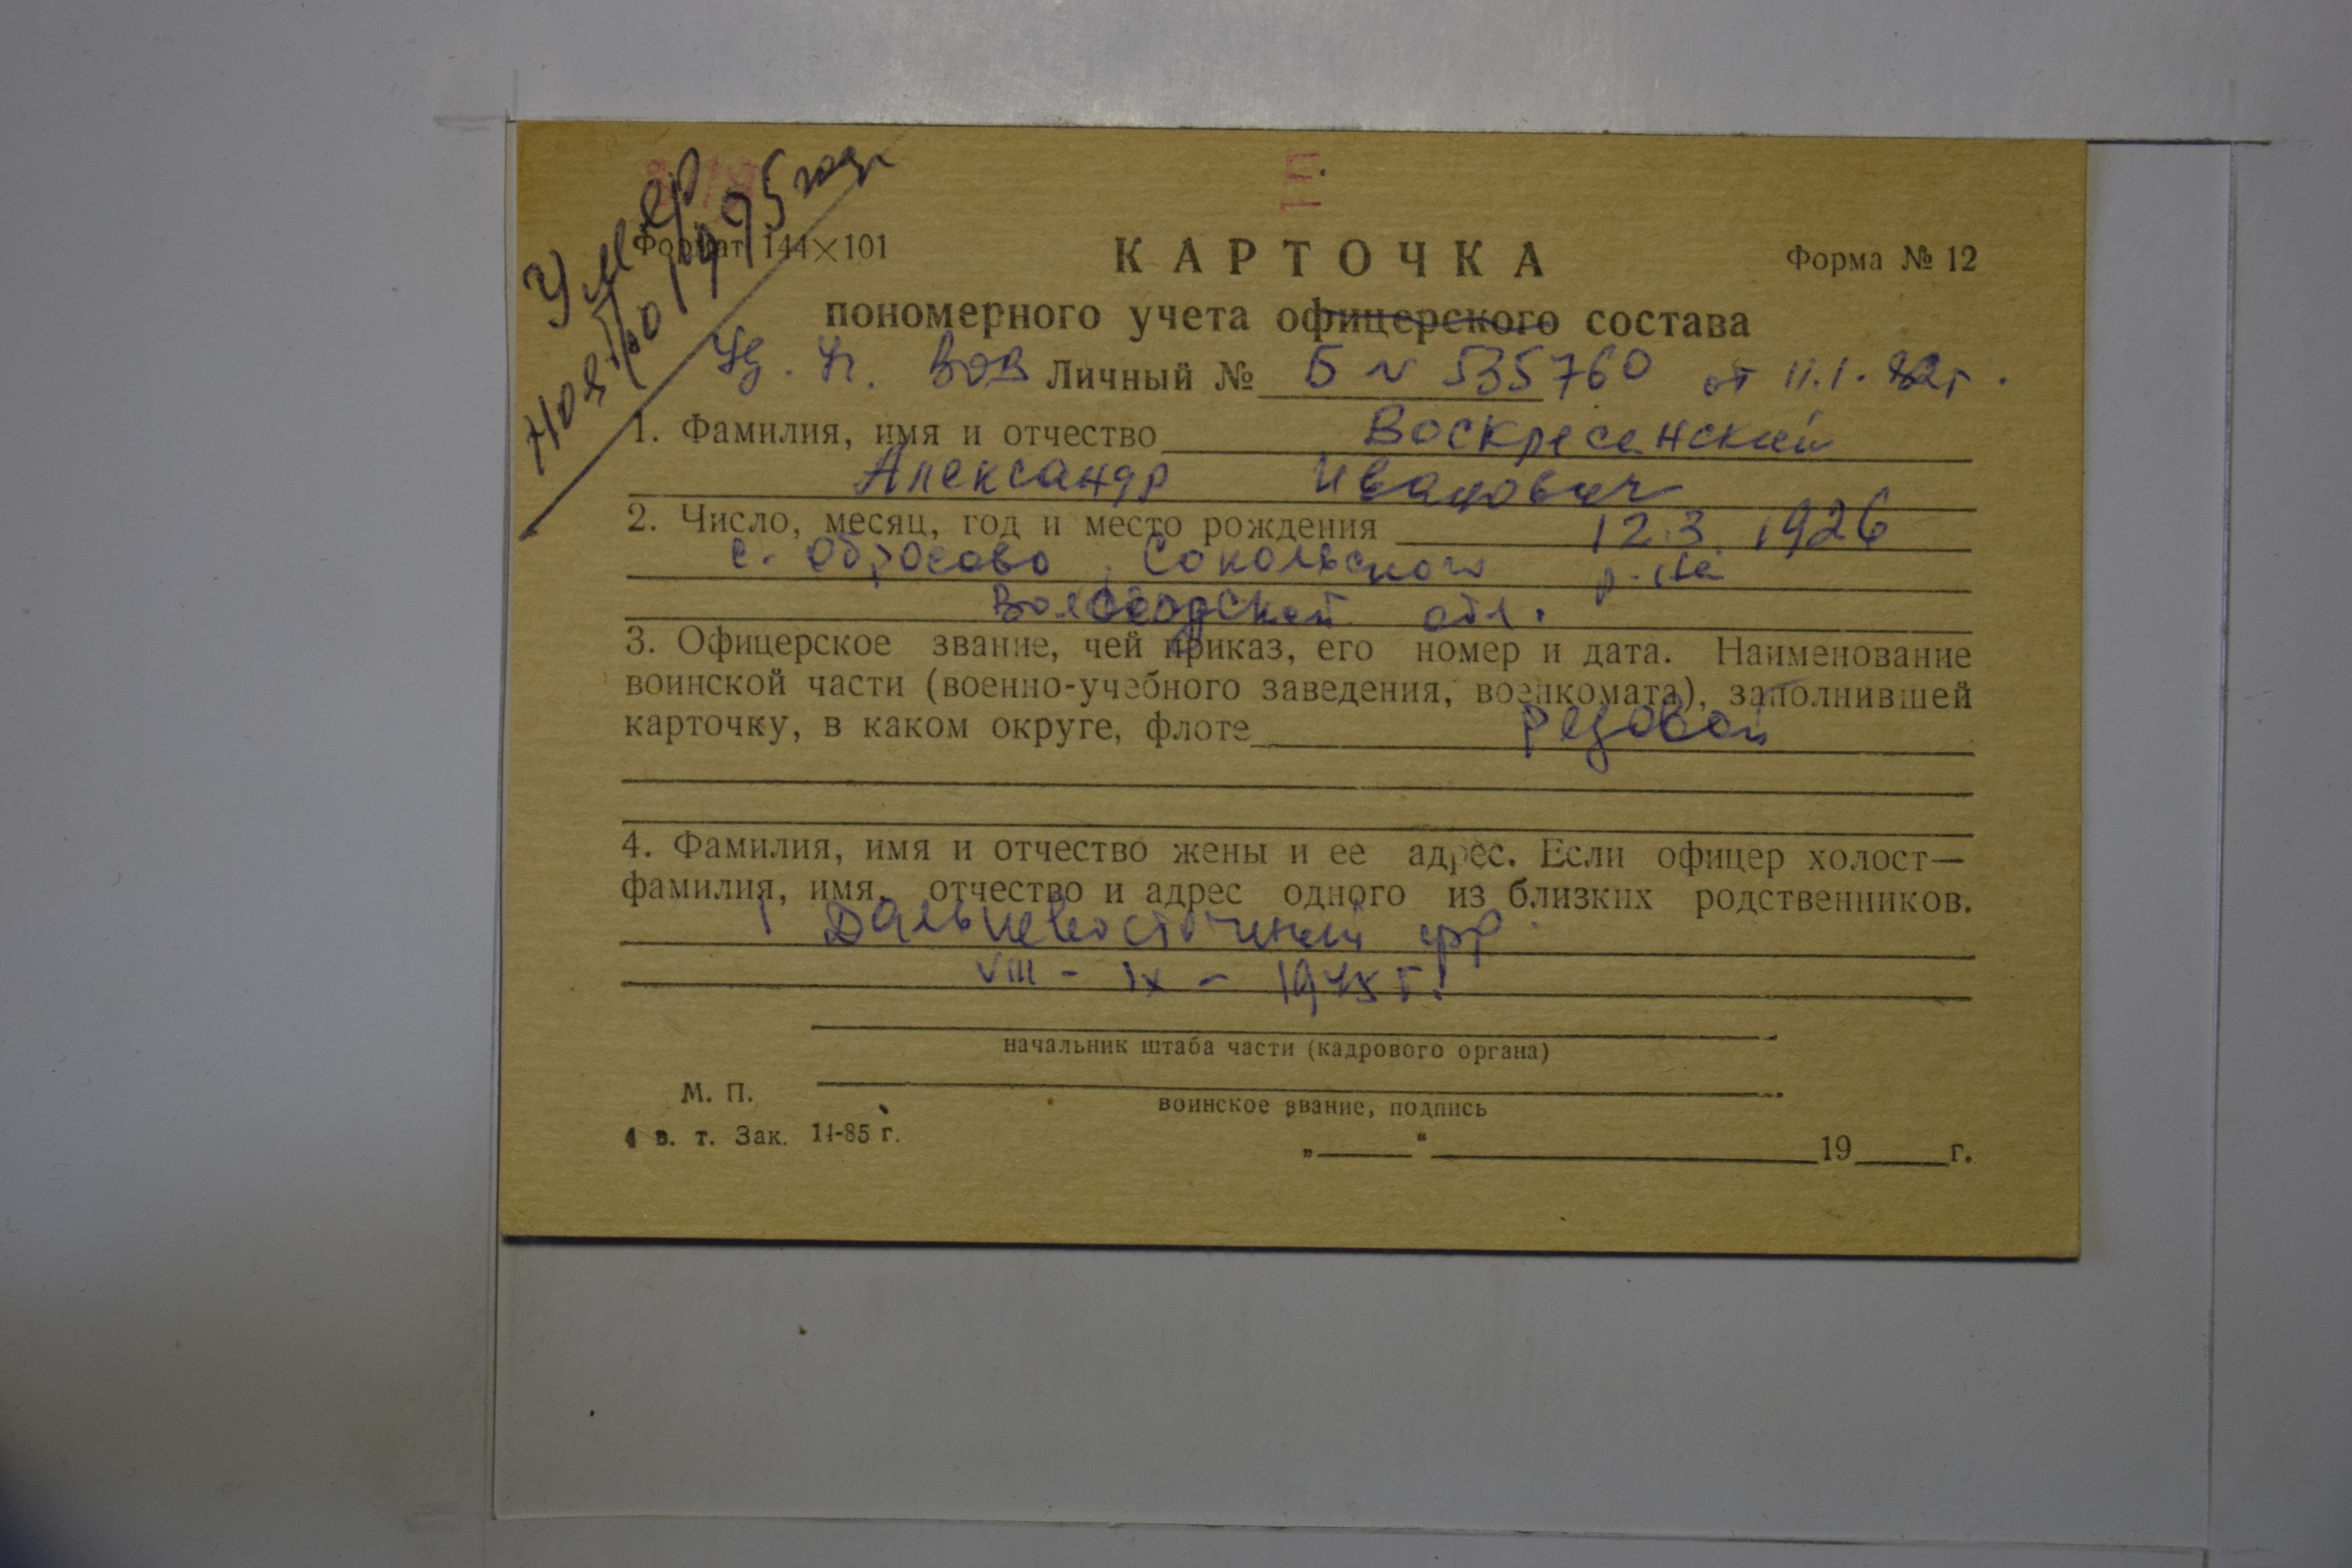 Умер
ноябрь 1995 года
Формат 144×101
КАРТОЧКА
Форма № 12
пономерного учета офицерского состава
Уд. Уч. ВОВ Личный № Б № 535760 от 11.1.82г.
1. Фамилия, имя и отчество Воскресенский
Александр Иванович
2. Число, месяц, год и место рождения 12.3.1926
с. Обросово Сокольского р-на
Вологодской обл.
3. Офицерское звание, чей приказ, его номер и дата. Наименование
воинской части (военно-учебного заведения, военкомата), заполнившей
карточку, в каком округе, флоте рядовой
4. Фамилия, имя и отчество жены и ее адрес. Если офицер холост—
фамилия, имя, отчество и адрес одного из близких родственников.
1 Дальневосточный фр.
VIII - IX - 1945 г.
начальник штаба части (кадрового органа)
М. П.
воинское звание, подпись
в. т. Зак. 14-85 г.
„ “ 19 г.